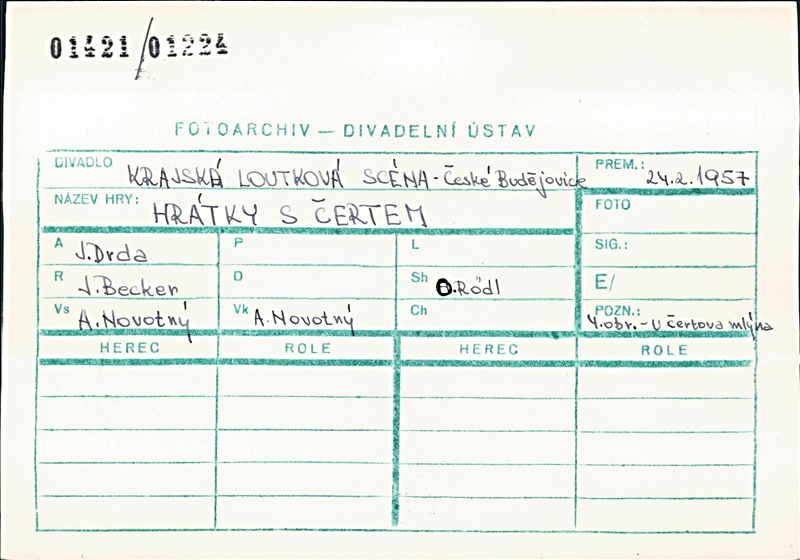 01421/01224
FOTOARCHIV — DIVADELNÍ ÚSTAV
DIVADLO KRAJSKÁ LOUTKOVÁ SCÉNA - České Budějovice PREM.: 24.2.1957
NÁZEV HRY: HRÁTKY S ČERTEM FOTO
A J. Drda P L SIG.:
R J. Becker D Sh O. Rödl E/
Vs A. Novotný Vk A. Novotný Ch POZN.: 4. obr. - U čertova mlýna
HEREC ROLE HEREC ROLE